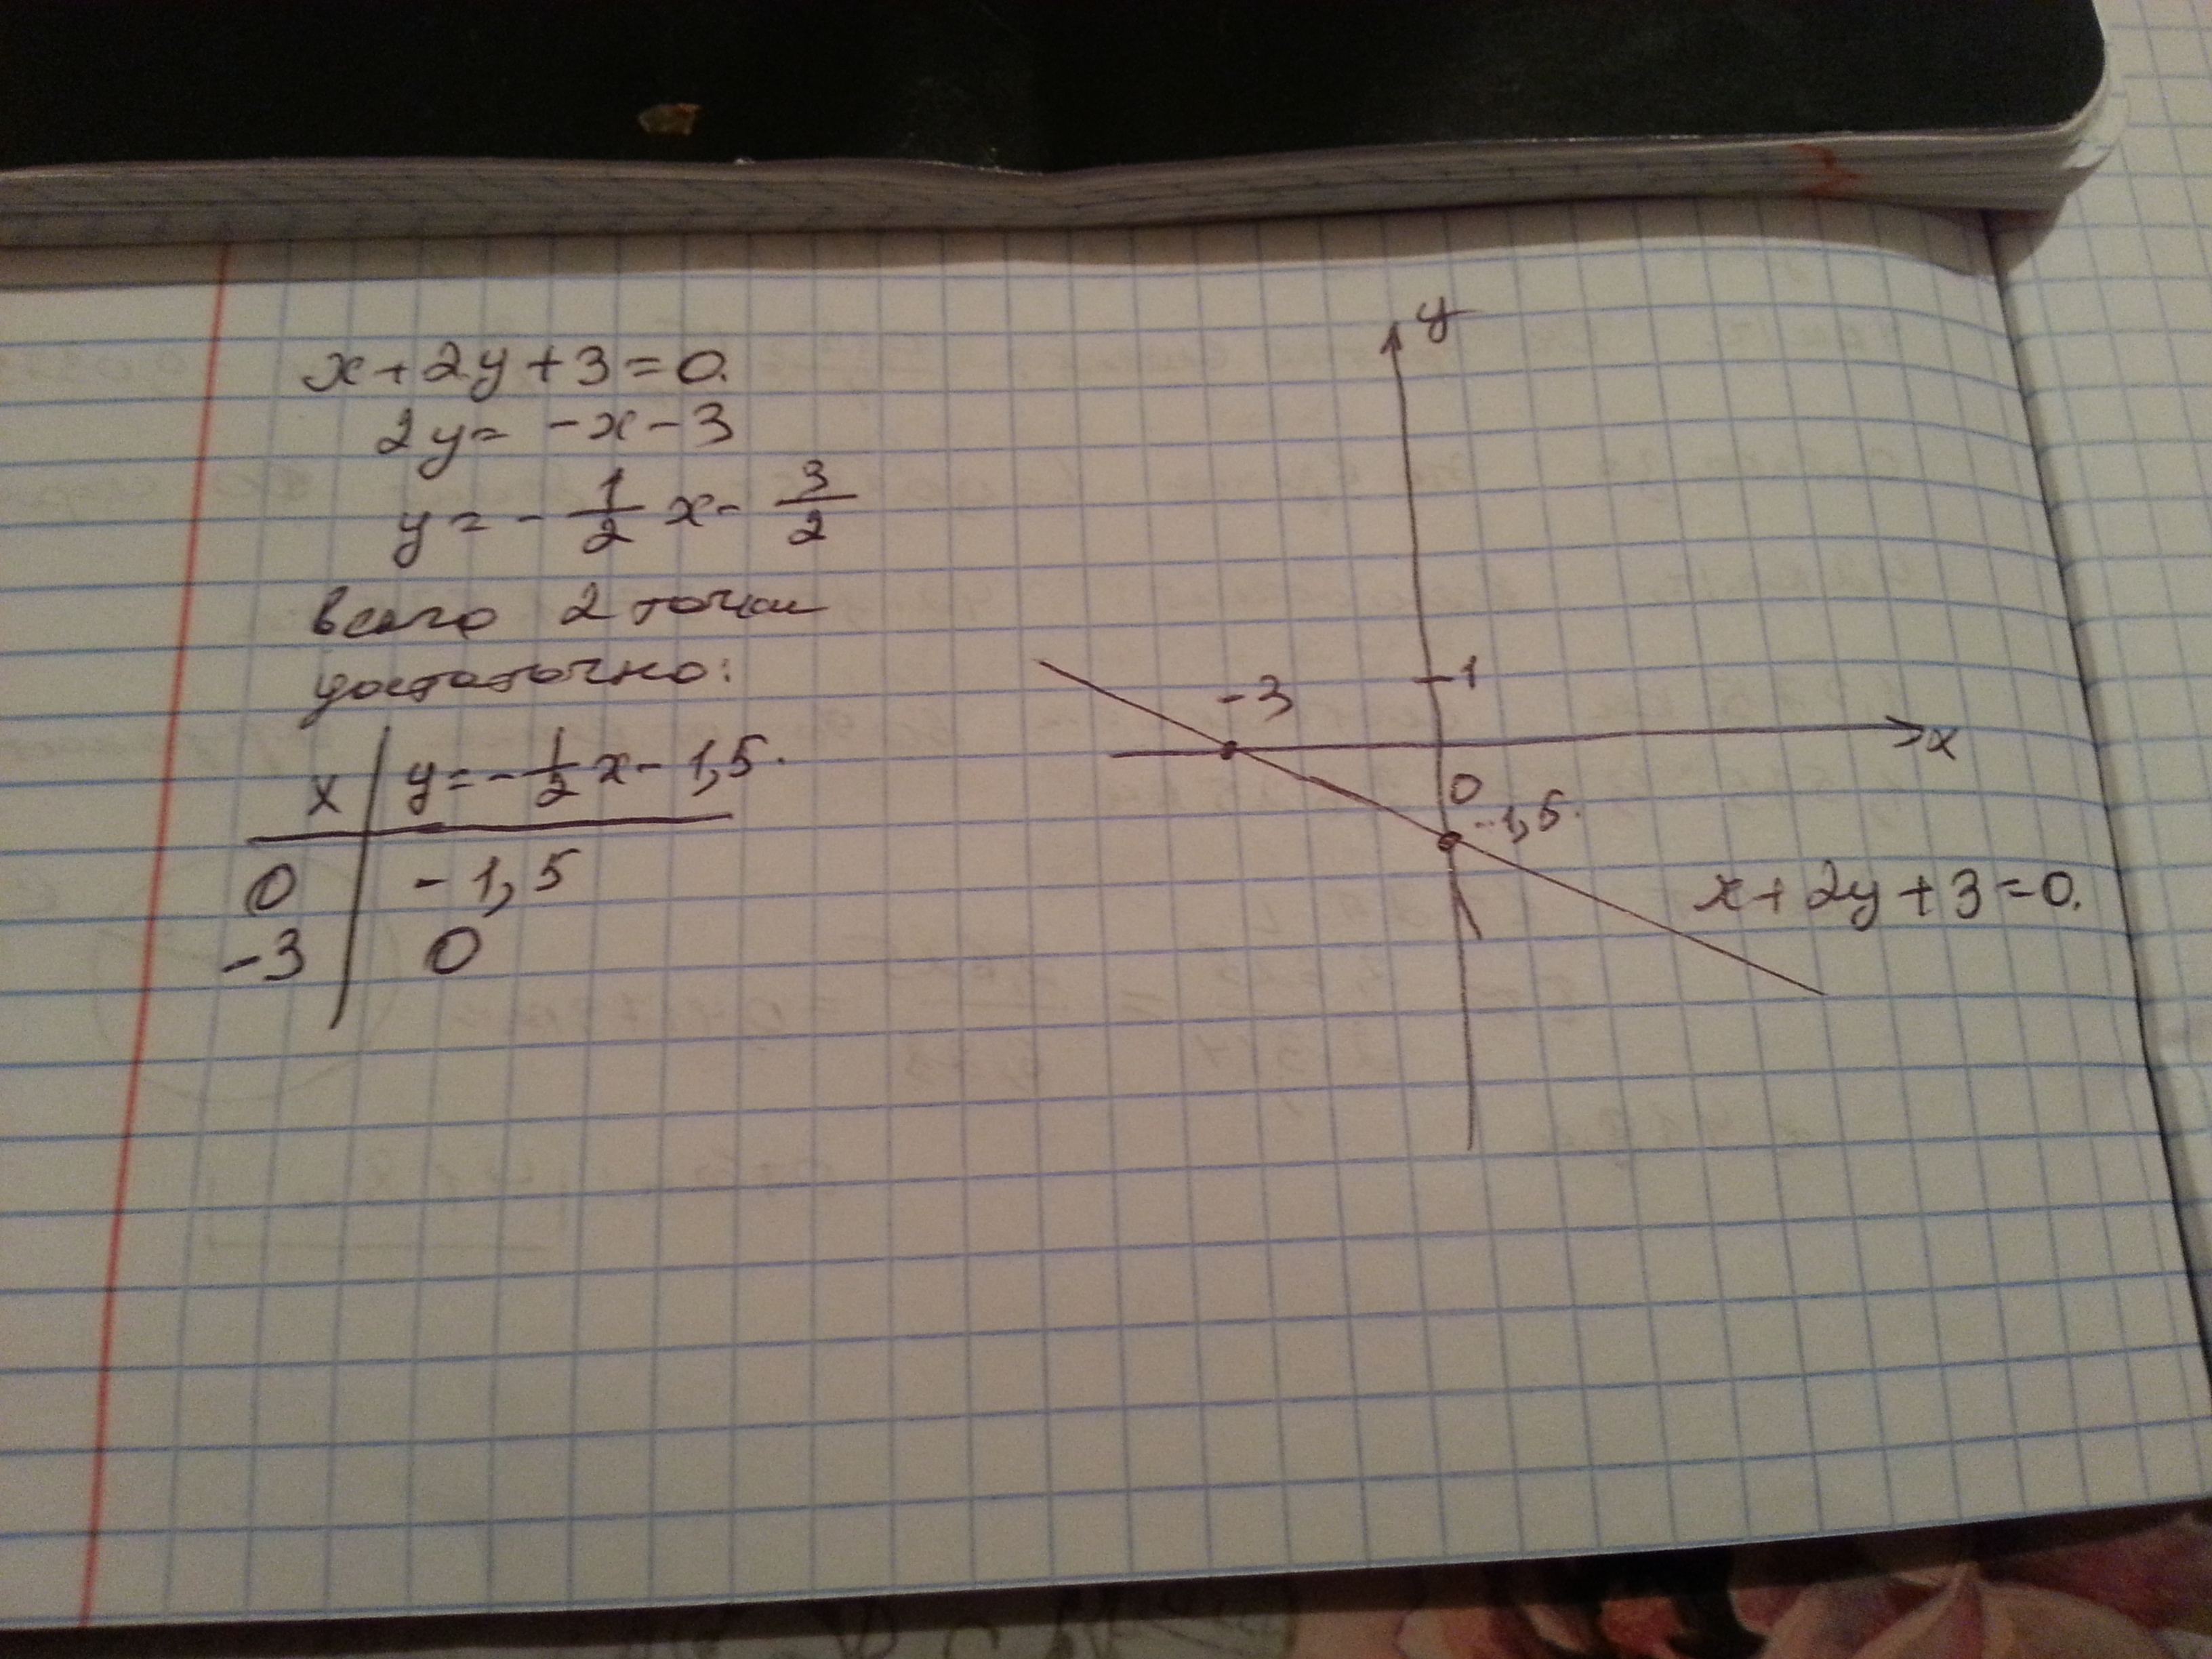 x+2y+3=0.
2y= -x-3
y = - 1/2 x - 3/2
всего 2 точки
достаточно:
x | y = - 1/2 x - 1,5.
0 | - 1,5
-3 | 0
y
1
-3
x
0
-1,5.
x+2y+3=0.